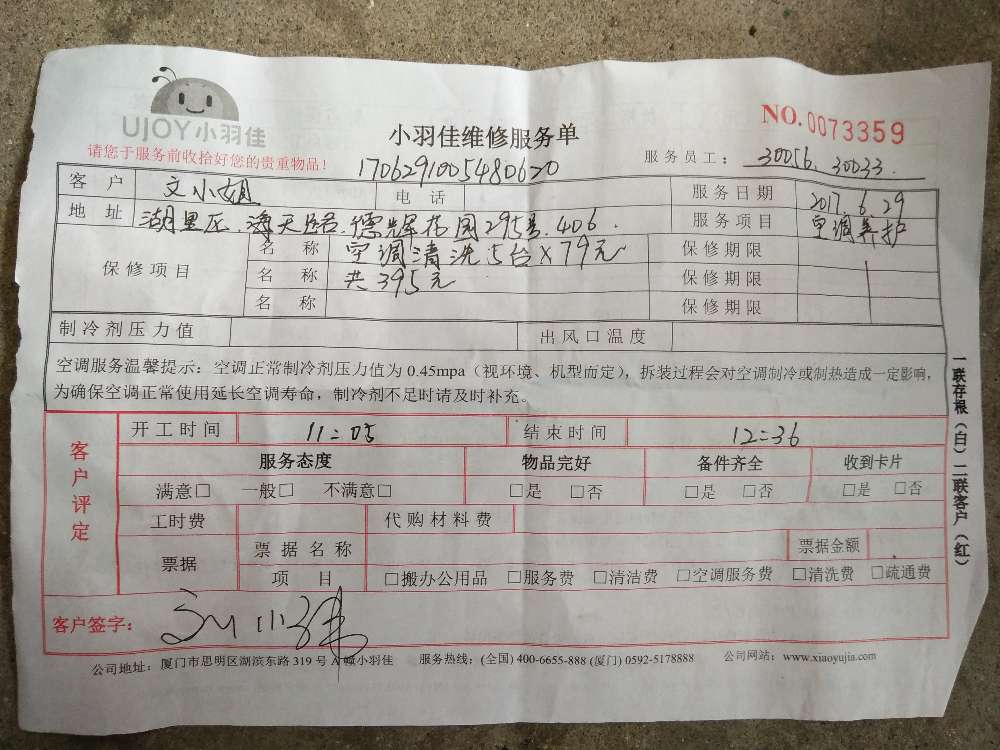 UJOY小羽佳
小羽佳维修服务单
NO.0073359
请您于服务前收拾好您的贵重物品！
1706291005480620
服务员工： 30056. 30033.
客户 文小姐 电话 服务日期 2017.6.29
地址 湖里区.海天路.德辉花园295号.406. 服务项目 空调养护
保修项目 名称 空调清洗5台×79元 保修期限
名称 共395元 保修期限
名称 保修期限
制冷剂压力值 出风口温度
空调服务温馨提示：空调正常制冷剂压力值为 0.45mpa（视环境、机型而定），拆装过程会对空调制冷或制热造成一定影响，
为确保空调正常使用延长空调寿命，制冷剂不足时请及时补充。
客户评定
开工时间 11:05 结束时间 12:36
服务态度 物品完好 备件齐全 收到卡片
满意□ 一般□ 不满意□ □是 □否 □是 □否 □是 □否
工时费 代购材料费
票据 票据名称 票据金额
项目 □搬办公用品 □服务费 □清洁费 □空调服务费 □清洗费 □疏通费
客户签字：
公司地址：厦门市思明区湖滨东路 319 号 A 幢小羽佳 服务热线：(全国) 400-6655-888 (厦门) 0592-5178888 公司网站：www.xiaoyujia.com
一联存根（白）二联客户（红）